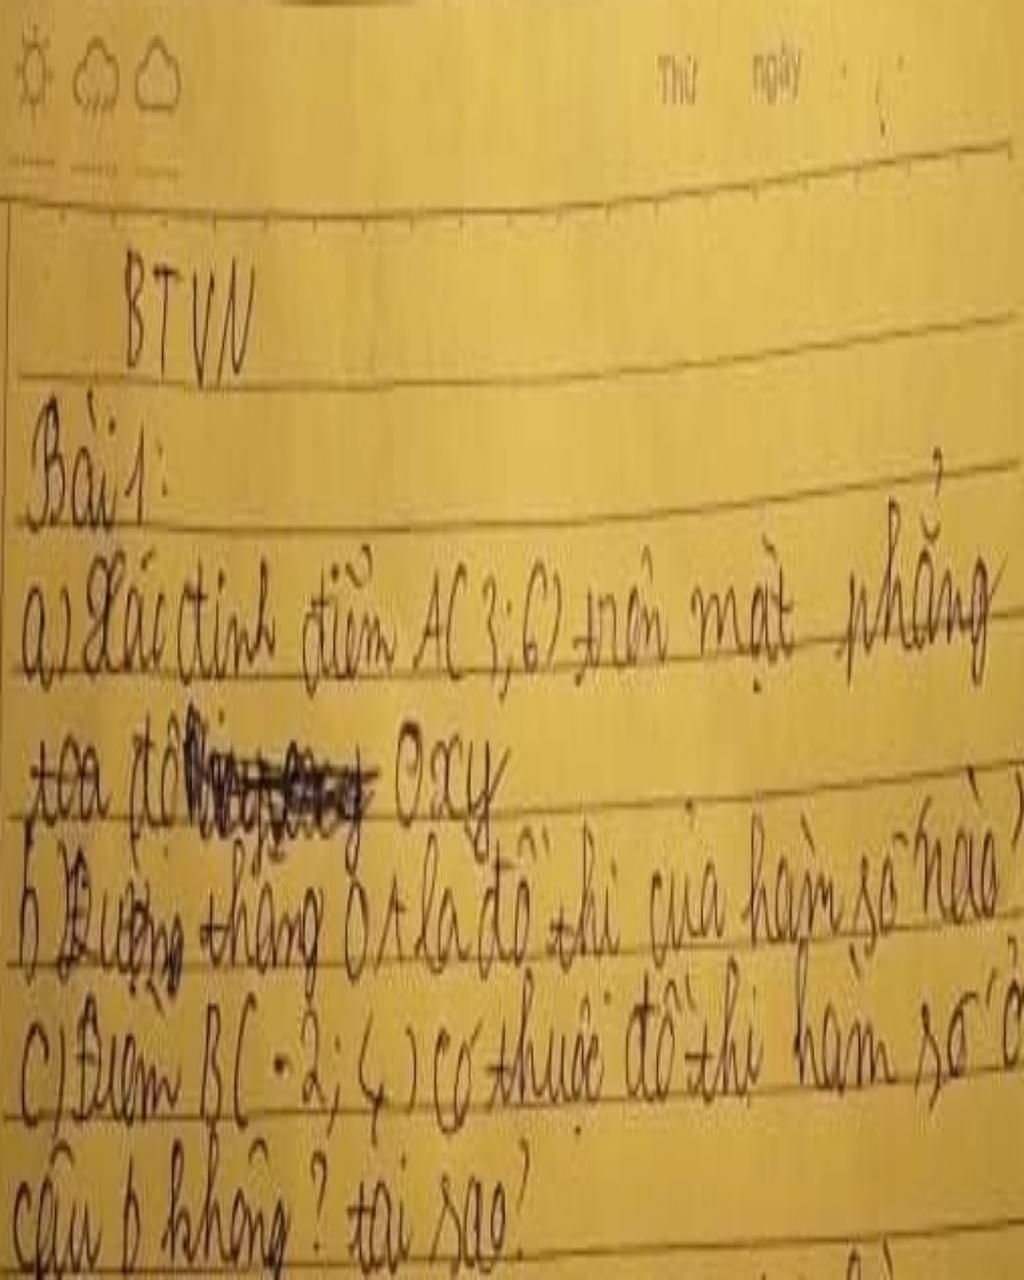 Thứ ngày
BTVN
Bài 1:
a) Xác định điểm A(3;6) trên mặt phẳng
tọa độ Oxy
b Đường thẳng OA là đồ thị của hàm số nào?
c) Điểm B(-2;4) có thuộc đồ thị hàm số ở
câu b không? tại sao?